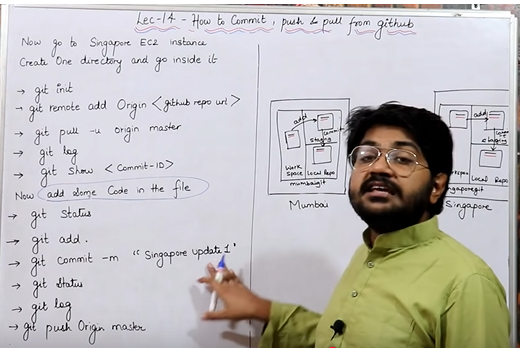 Lec-14 - How to Commit, push & pull from github
Now go to Singapore EC2 instance
Create One directory and go inside it
→ git init
→ git remote add Origin <github repo url>
→ git pull -u origin master
→ git log
→ git show <Commit-ID>
Now add Some Code in the file
→ git Status
→ git add .
→ git Commit -m "Singapore update 1"
→ git Status
→ git log
→ git push Origin master
add
staging
Work Space
Local Repo
mumbaigit
Mumbai
add
staging
Local Repo
Singapore